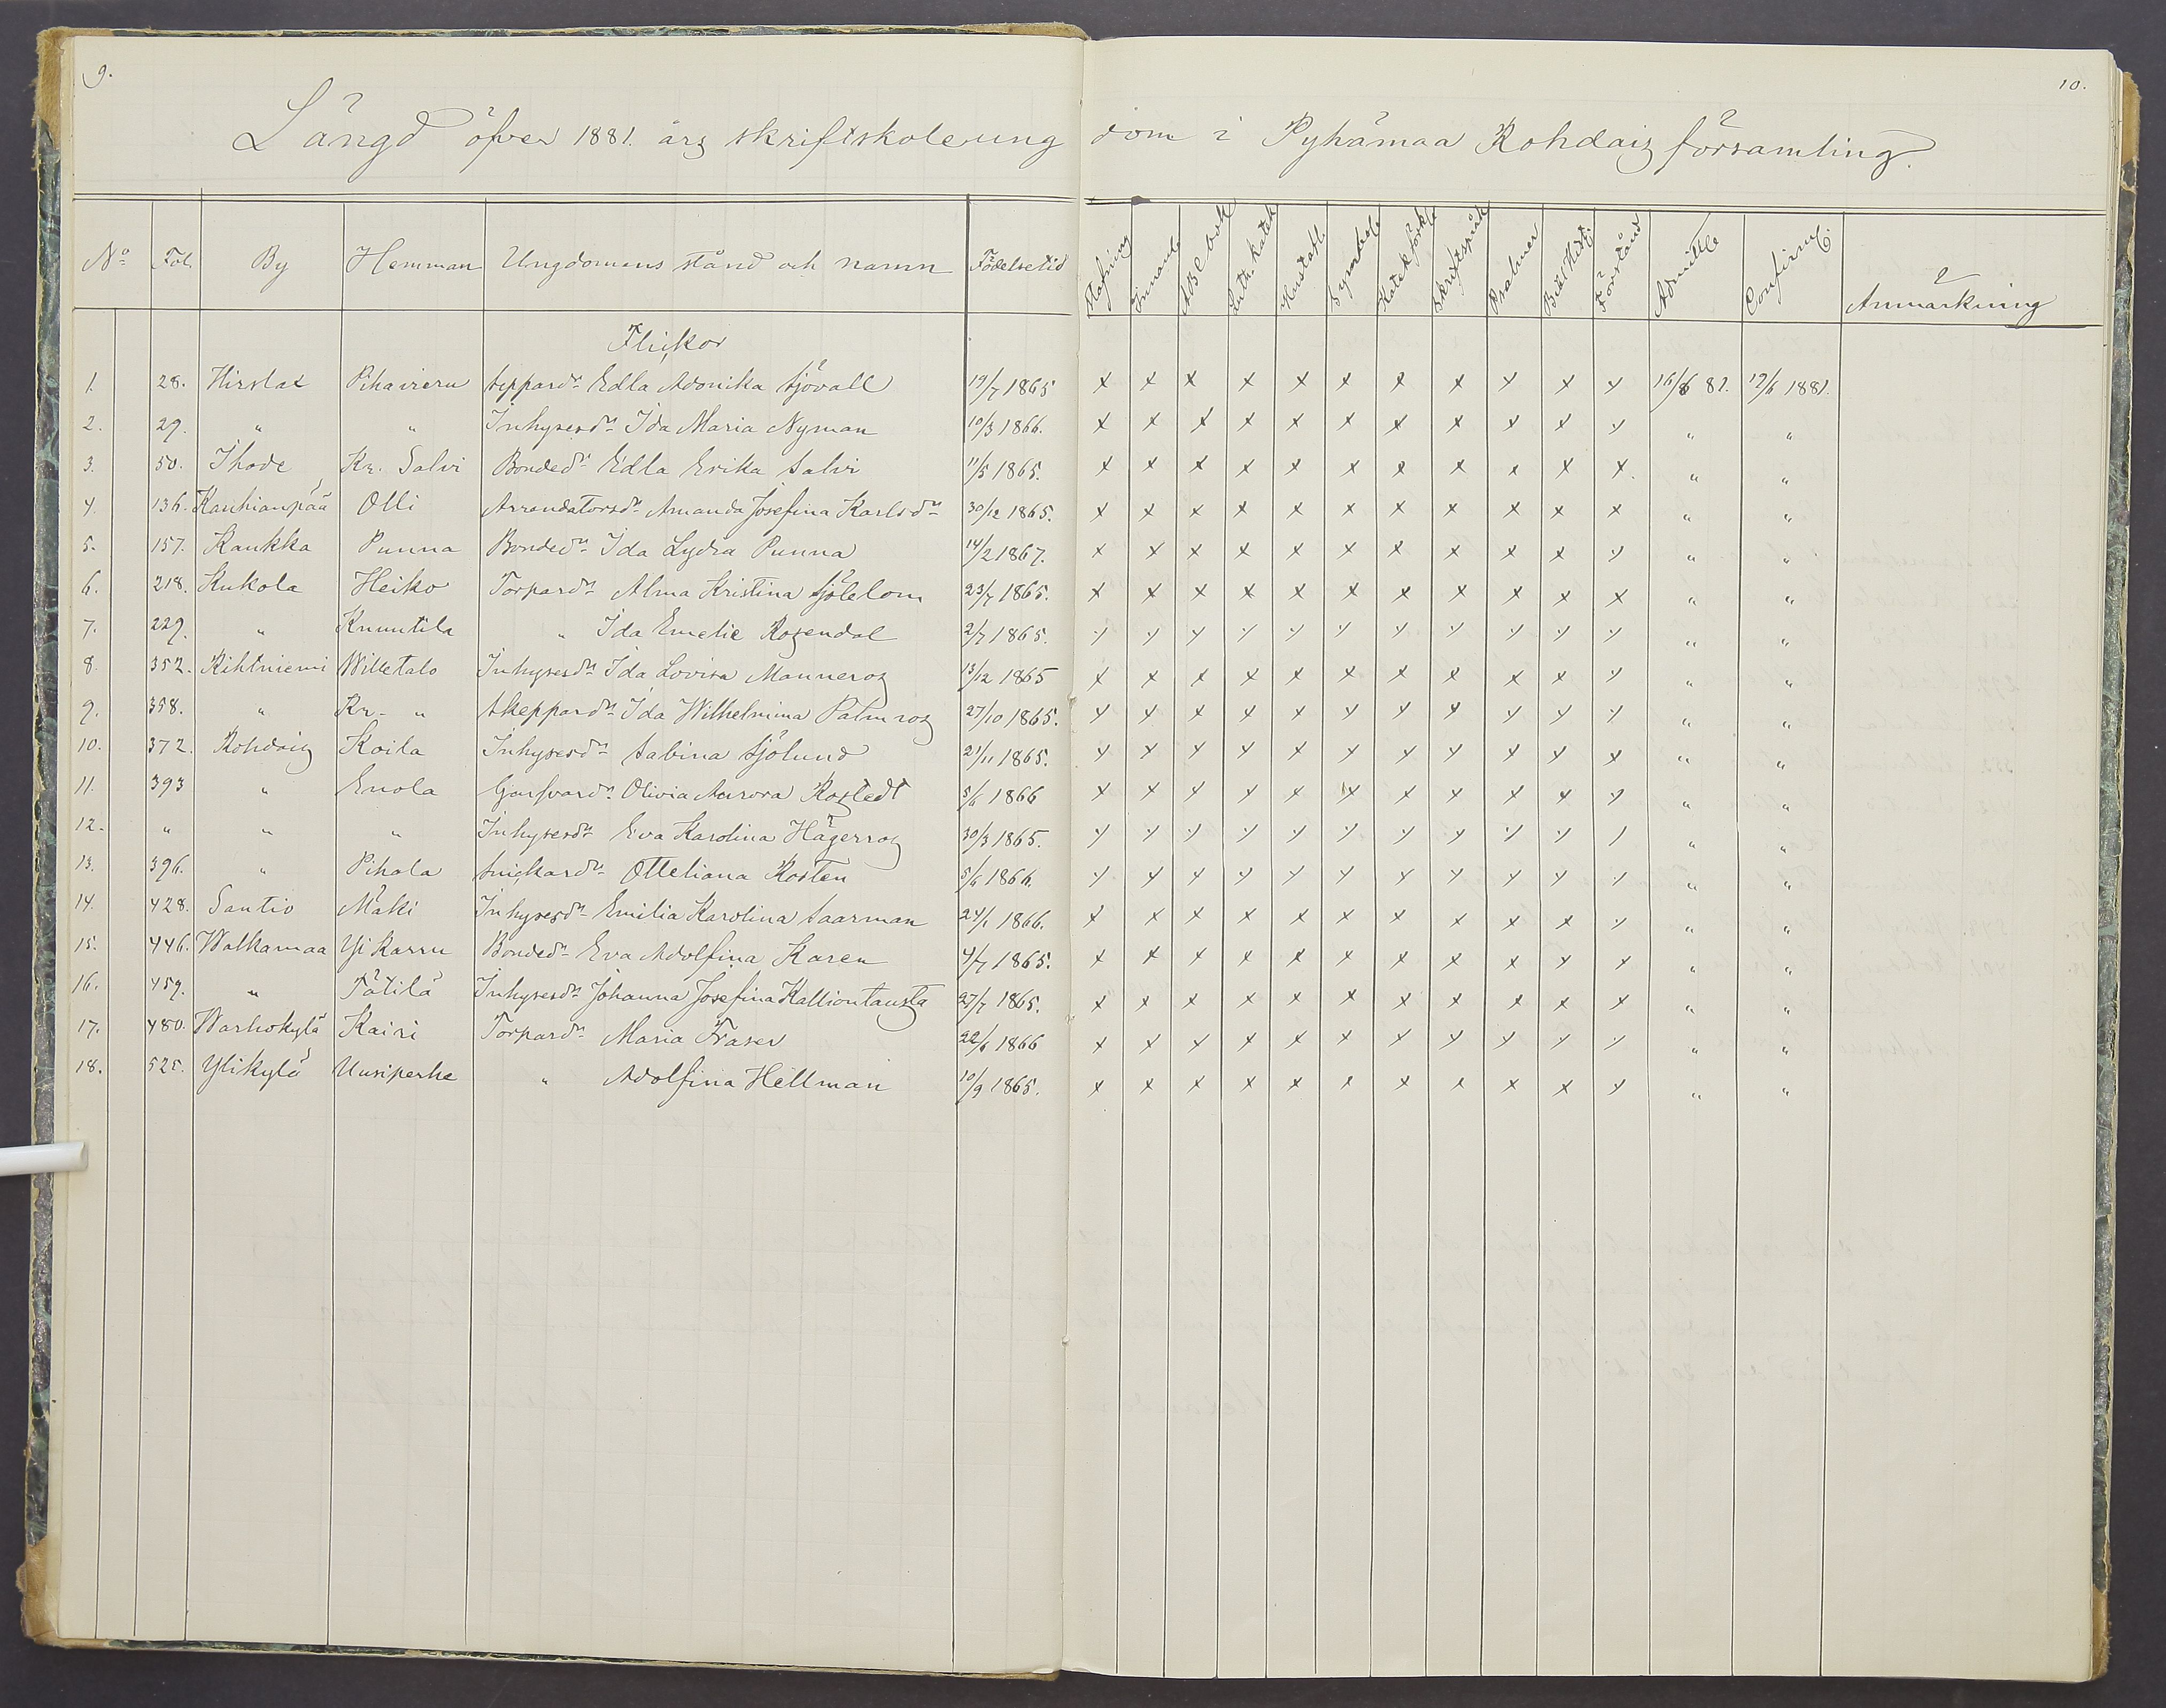 9.
10.
Längd öfver 1881. års skriftskoleungdom i Pyhämaa Rohdais församling.
No Fol. By Hemman Ungdomens stånd och namn Födelsetid Stafning Innanl. ABC bok Luth. Katek Hustafl. Symbola Katek.förkl. Skriftspråk Psalmer Bibl. Hist. Förstånd Admitt. Confirm. Anmärkning
Flickor
1. 28. Hirslax Pihavieru Seppard:r Edla Adonika Sjövall 19/7 1865 x x x x x x x x x x x 16/6 81. 19/6 1881.
2. 29. " " Inhysesd:r Ida Maria Nyman 10/3 1866. x x x x x x x x x x x " "
3. 50. Ihode Kr. Salvi Bonded:r Edla Erika Salvi 11/5 1865. x x x x x x x x x x x " "
4. 136. Kauhianpää Olli Arrendatorsd:r Amanda Josefina Karlsd:r 30/12 1865. x x x x x x x x x x x " "
5. 157. Kaukka Punna Bonded:r Ida Lydia Punna 14/2 1867. x x x x x x x x x x x " "
6. 218. Kukola Heiko Torpard:r Alma Kristina Sjöblom 23/7 1865. x x x x x x x x x x x " "
7. 229. " Knuutila " Ida Emelie Rosendal 2/7 1865. x x x x x x x x x x x " "
8. 352. Rihtniemi Willetalo Inhysesd:r Ida Lovisa Manneros 13/12 1865 x x x x x x x x x x x " "
9. 358. " Kr. " Skeppard:r Ida Wilhelmina Palmros 27/10 1865. x x x x x x x x x x x " "
10. 372. Rohdais Koila Inhysesd:r Sabina Sjölund 21/11 1865. x x x x x x x x x x x " "
11. 393 " Enola Garfvard:r Olivia Aurora Rostedt 5/6 1866 x x x x x x x x x x x " "
12. " " " Inhysesd:r Eva Karolina Hägerros 30/3 1865. x x x x x x x x x x x " "
13. 396. " Pihola Snickard:r Otteliana Rosten 5/6 1866. x x x x x x x x x x x " "
14. 428. Santio Mäki Inhysesd:r Emilia Karolina Saarman 24/1 1866. x x x x x x x x x x x " "
15. 446. Walkamaa Yli Karru Bonded:r Eva Adolfina Karen 4/7 1865. x x x x x x x x x x x " "
16. 459. " Tätilä Inhysesd:r Johanna Josefina Kalliontausta 27/7 1865. x x x x x x x x x x x " "
17. 480. Warhokylä Kairi Torpard:r Maria Fraser 22/6 1866 x x x x x x x x x x x " "
18. 525. Ylikylä Uusiperhe " Adolfina Hellman 10/9 1865. x x x x x x x x x x x " "